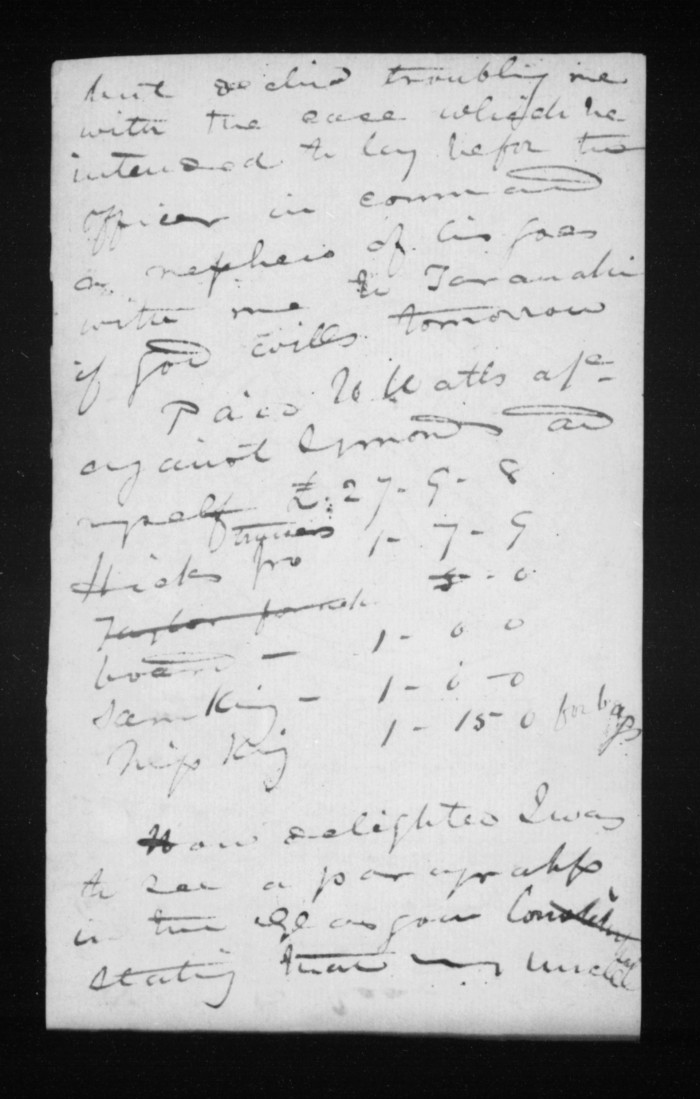 but declined troubling me
with the case which he
intended to lay before the
Officer in command
a nephew of his goes
with me to Taranaki
if God wills tomorrow
Paid W Watts a/c
against Symonds and
myself £27-9-8
Hicks for 1-7-9
Taylor 5-0
board - 1-0 0
Sam King - 1-0-0
King 1-15-0 for bags
How delighted I was
to see a paragraph
in the Glasgow Constitut
stating that my uncle